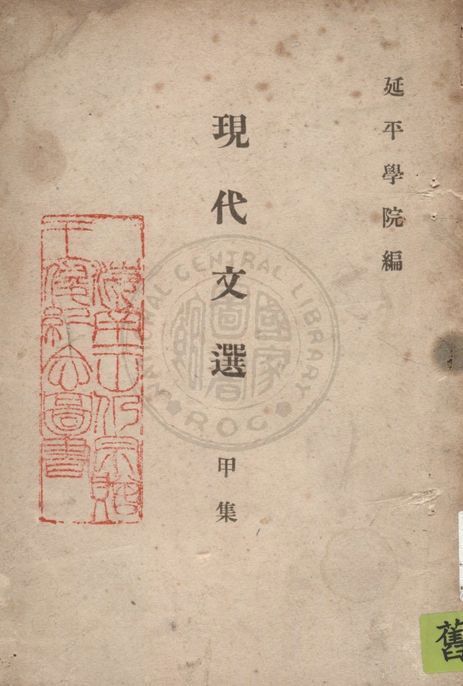 延平學院編
現代文選 甲集
圖書
NATIONAL CENTRAL LIBRARY
ROC
國家圖書館
舊